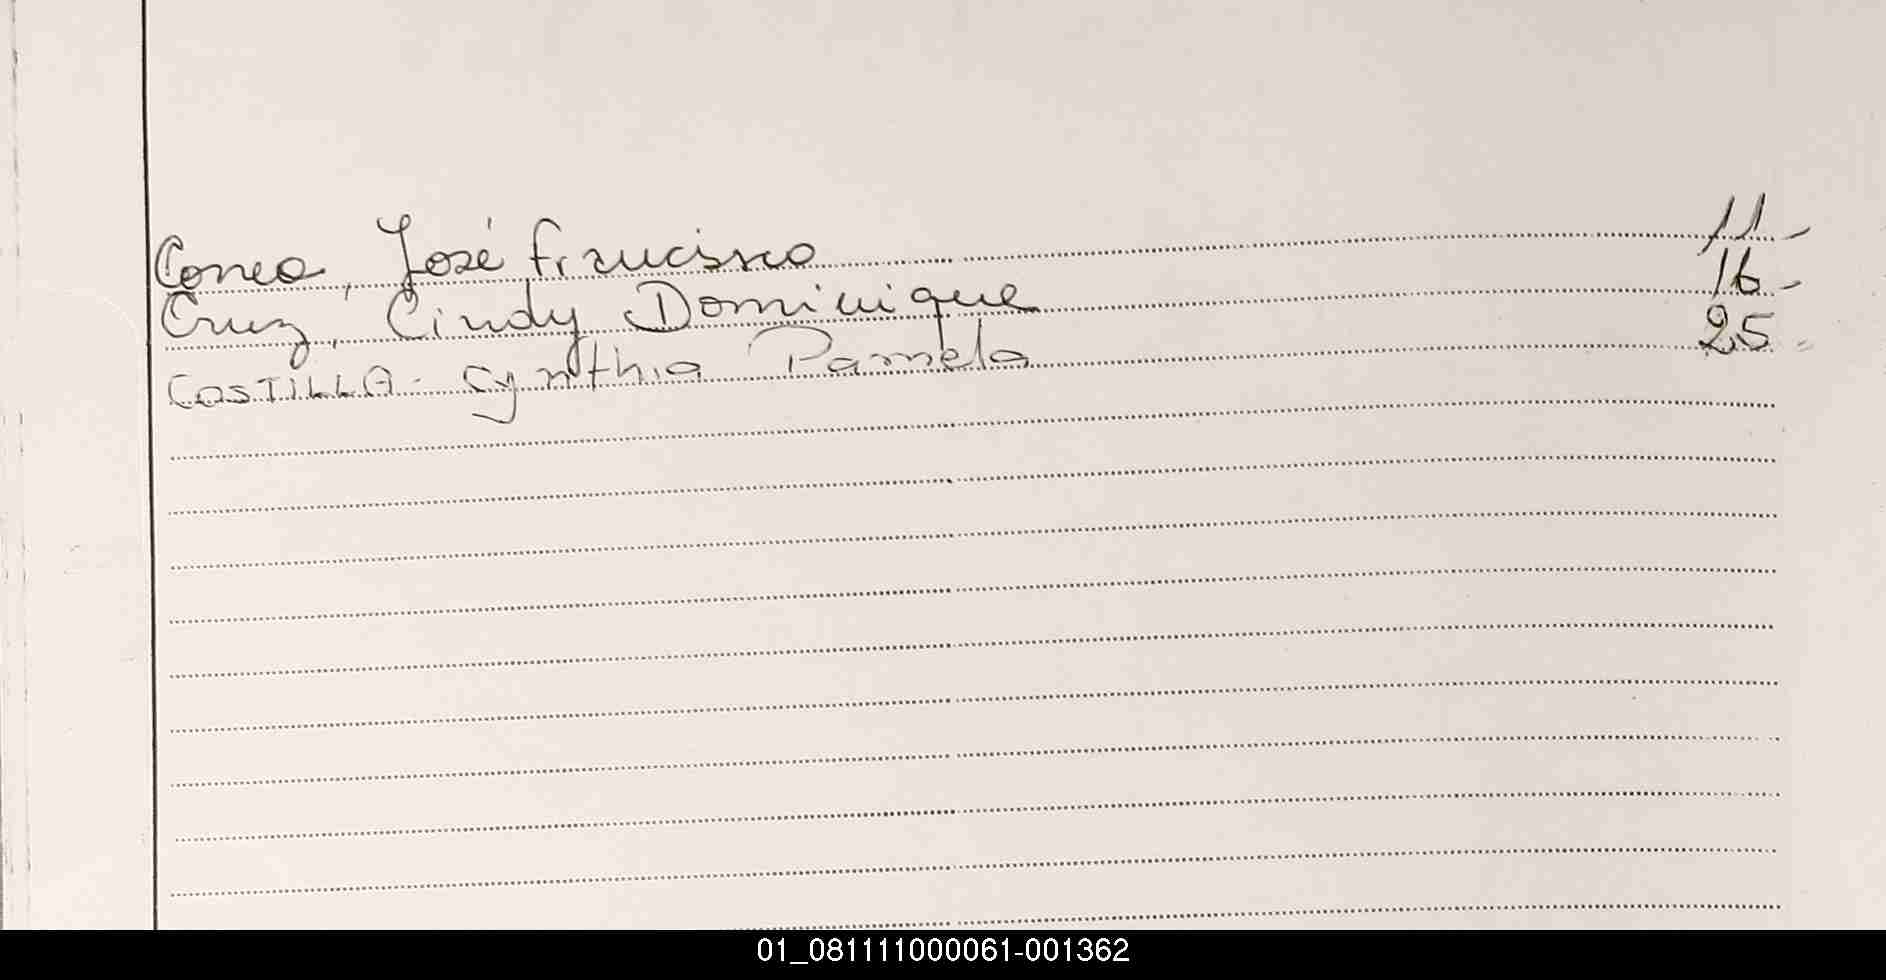 Correa, José Francisco 11-
Cruz, Cindy Dominique 16-
COSTILLA- Cynthia Pamela 25-
01_081111000061-001362